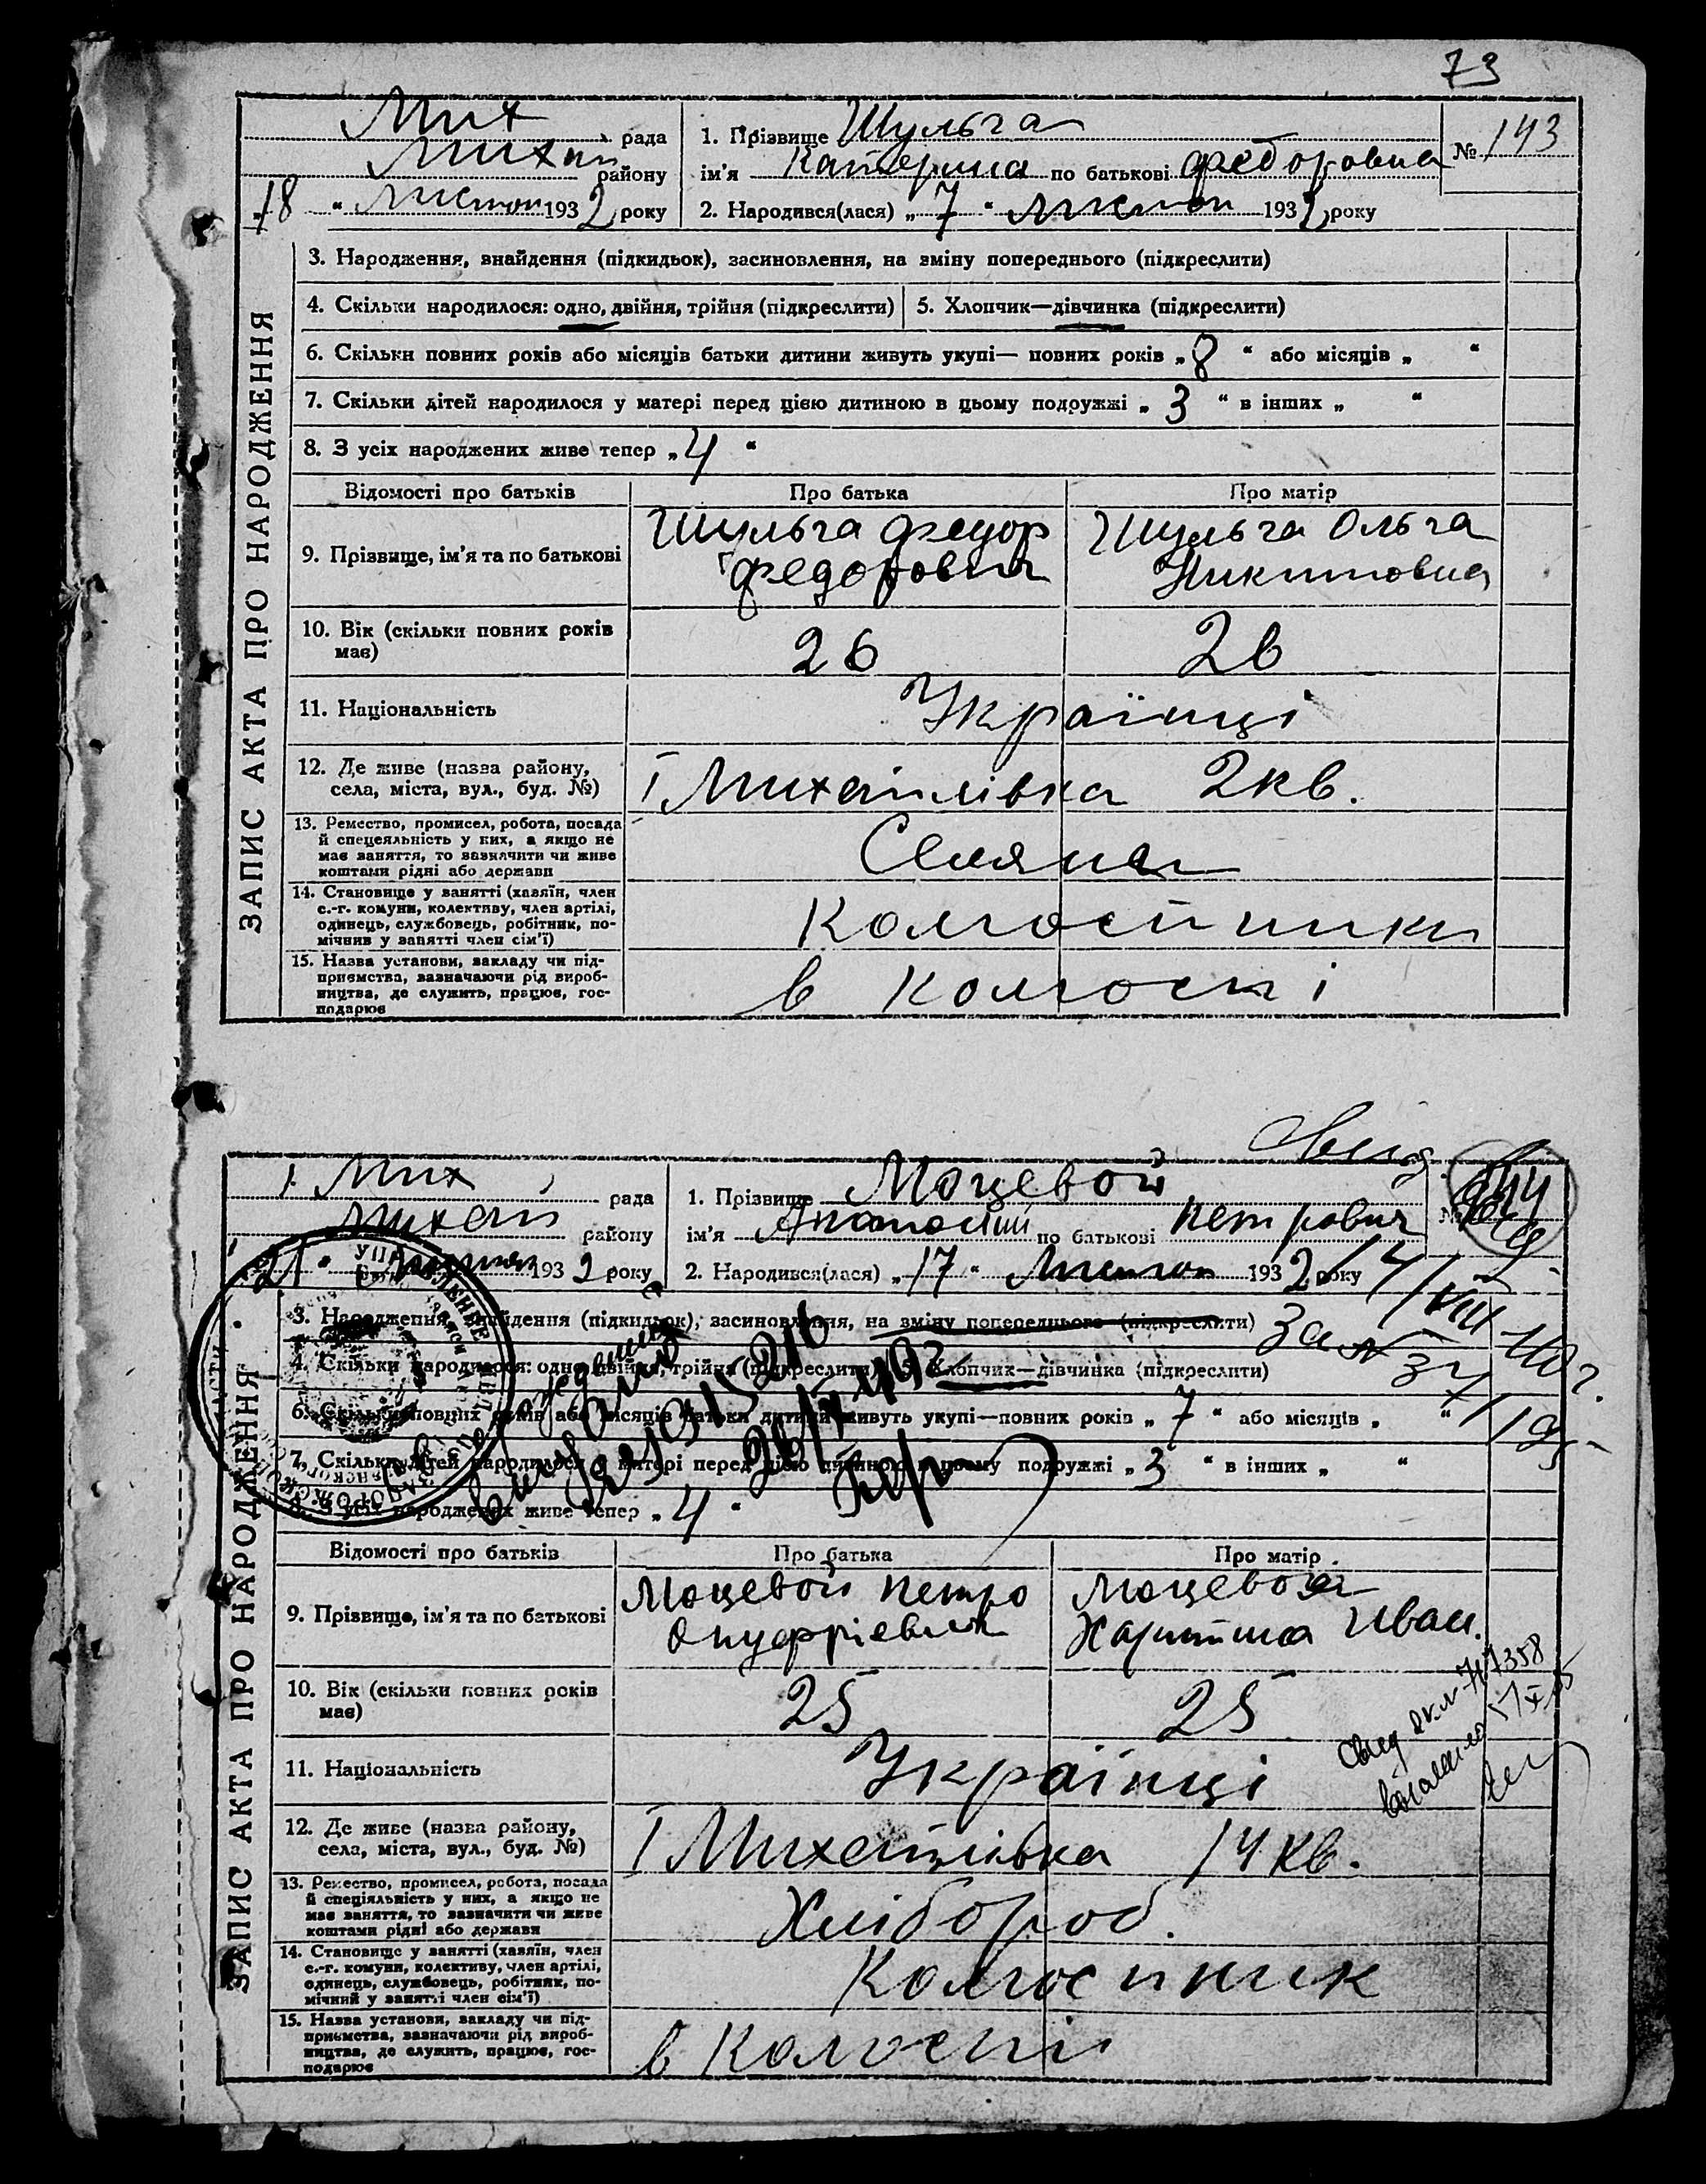 73
Мих рада
Михай району
„18“ листоп 1932 року
1. Прізвище Шульга
ім'я Катерина по батькові Федоровна
2. Народився(лася) „7“ листоп 1932 року
№ 143
ЗАПИС АКТА ПРО НАРОДЖЕННЯ
3. Народження, знайдення (підкидьок), засиновлення, на зміну попереднього (підкреслити)
4. Скільки народилося: одно, двійня, трійня (підкреслити) 5. Хлопчик—дівчинка (підкреслити)
6. Скільки повних років або місяців батьки дитини живуть укупі— повних років „8“ або місяців „ “
7. Скільки дітей народилося у матері перед цією дитиною в цьому подружжі „3“ в інших „ “
8. З усіх народжених живе тепер „4“
Відомості про батьків Про батька Про матір
9. Прізвище, ім'я та по батькові
Шульга Федор
Федорович
Шульга Ольга
Никитовна
10. Вік (скільки повних років
має)
26 26
11. Національність Українці
12. Де живе (назва району,
села, міста, вул., буд. №)
І Михайлівка 2 кв.
13. Ремество, промисел, робота, посада
й спецеяльність у них, а якщо не
має заняття, то зазначити чи живе
коштами рідні або держави
Селяни
14. Становище у занятті (хазяїн, член
с.-г. комуни, колективу, член артілі,
одинець, службовець, робітник, по-
мічник у занятті член сім'ї)
Колгоспники
15. Назва установи, закладу чи під-
приємства, зазначаючи рід вироб-
ництва, де служить, працює, гос-
подарює
в колгоспі
Свид
І Мих рада
Михай району
„21“ 1932 року
1. Прізвище Моцевой
ім'я Анатолий по батькові Петрович
2. Народився(лася) „17“ Листоп 1932 року
№ 144
4/VIII 40 г.
За № 37
ЗАПИС АКТА ПРО НАРОДЖЕННЯ
3. Народження, знайдення (підкидьок), засиновлення, на зміну попереднього (підкреслити)
4. Скільки народилося: одно, двійня, трійня (підкреслити) 5. Хлопчик—дівчинка (підкреслити)
6. Скільки повних років або місяців батьки дитини живуть укупі—повних років „7“ або місяців „ “
7. Скільки дітей народилося у матері перед цією дитиною в цьому подружжі „3“ в інших „ “
8. З усіх народжених живе тепер „4“
Відомості про батьків Про батька Про матір
9. Прізвище, ім'я та по батькові
Моцевой Петро
Онуфріевич
Моцевоя
Харитина Иван.
10. Вік (скільки повних років
має)
25 25
11. Національність Українці
12. Де живе (назва району,
села, міста, вул., буд. №)
І Михайлівка 14 кв.
13. Ремество, промисел, робота, посада
й спеціяльність у них, а якщо не
має заняття, то зазначити чи живе
коштами рідні або держави
Хлібороб.
14. Становище у занятті (хазяїн, член
с.-г. комуни, колективу, член артілі,
одинець, службовець, робітник, по-
мічний у занятті член сім'ї)
Колгоспник
15. Назва установи, закладу чи під-
приємства, зазначаючи рід вироб-
ництва, де служить, працює, гос-
подарює
в Колгоспі